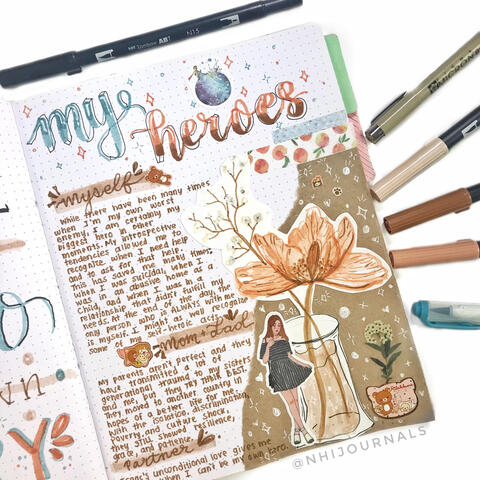 Tombow ABT N15
my heroes
myself
While there have been many times
when I'm my own worst
enemy, I am certainly my
biggest hero in other
moments. My introspective
tendencies allowed me to
recognize when I need help
and to ask for that help.
This has saved me when
I was suicidal, when I
was in an abusive home as a
child, and when I was in a
relationship that didn't fulfill my
needs. At the end of the day, the
only person who is ALWAYS with me
is myself. I might as well recognize
some of my self-heroic activity.
Mom + Dad
My parents aren't perfect and they
have transmitted a lot of
generational trauma to my sisters
and me, but they try their best.
They moved to another country in
hopes of a better life for us.
With the isolation, discrimination,
poverty and culture shock,
they still showed resilience,
grace, and patience.
Partner
unconditional love gives me
when I can't be my own hero.
@NHIJOURNALS